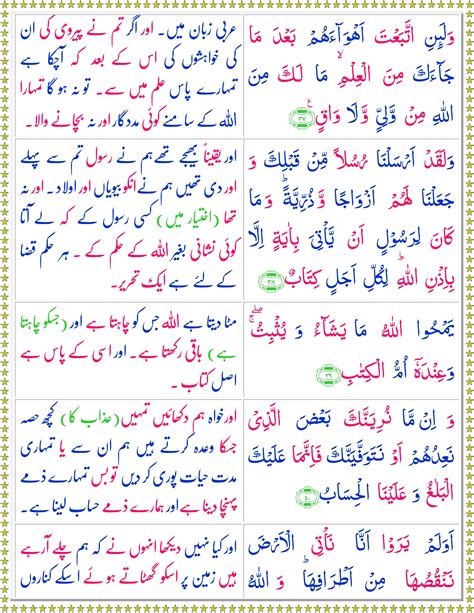 وَلَئِنِ اتَّبَعْتَ اَهْوَآءَهُمْ بَعْدَ مَا
جَآءَكَ مِنَ الْعِلْمِ ۙ مَا لَكَ مِنَ
اللهِ مِنْ وَّلِيٍّ وَّلَا وَاقٍ ۧ ﴿۳۷﴾
عربی زبان میں۔ اور اگر تم نے پیروی کی ان
کی خواہشوں کی اس کے بعد کہ آچکا ہے
تمہارے پاس علم میں سے۔ تو نہ ہو گا تمہارا
اللہ کے سامنے کوئی مددگار اور نہ بچانے والا۔
وَلَقَدْ اَرْسَلْنَا رُسُلًا مِّنْ قَبْلِكَ وَ
جَعَلْنَا لَهُمْ اَزْوَاجًا وَّذُرِّيَّةً ؕ وَمَا
كَانَ لِرَسُوْلٍ اَنْ يَّاْتِيَ بِاٰيَةٍ اِلَّا
بِاِذْنِ اللهِ ؕ لِكُلِّ اَجَلٍ كِتَابٌ ﴿۳۸﴾
اور یقیناً بھیجے تھے ہم نے رسول تم سے پہلے
اور دی تھیں ہم نے انکو بیویاں اور اولاد۔ اور نہ
تھا (اختیار میں) کسی رسول کے کہ لے آتا
کوئی نشانی بغیر اللہ کے حکم کے۔ ہر حکم قضا
کے لئے ہے ایک تحریر۔
يَمْحُوا اللهُ مَا يَشَآءُ وَ يُثْبِتُ ۖۚ
وَعِنْدَهٗۤ اُمُّ الْكِتٰبِ ﴿۳۹﴾
مٹا دیتا ہے اللہ جس کو چاہتا ہے اور (جسکو چاہتا
ہے) باقی رکھتا ہے۔ اور اسی کے پاس ہے
اصل کتاب۔
وَ اِنْ مَّا نُرِيَنَّكَ بَعْضَ الَّذِيْ
نَعِدُهُمْ اَوْ نَتَوَفَّيَنَّكَ فَاِنَّمَا عَلَيْكَ
الْبَلٰغُ وَ عَلَيْنَا الْحِسَابُ ﴿۴۰﴾
اور خواہ ہم دکھائیں تمہیں (عذاب کا) کچھ حصہ
جسکا وعدہ کرتے ہیں ہم ان سے یا تمہاری
مدت حیات پوری کر دیں تو بس تمہارے ذمے
پہنچا دینا ہے اور ہمارے ذمے حساب لینا ہے۔
اَوَلَمْ يَرَوْا اَنَّا نَاْتِي الْاَرْضَ
نَنْقُصُهَا مِنْ اَطْرَافِهَا ؕ وَ اللهُ
اور کیا نہیں دیکھا انہوں نے کہ ہم چلے آرہے
ہیں زمین پر اسکو گھٹاتے ہوئے اسکے کناروں